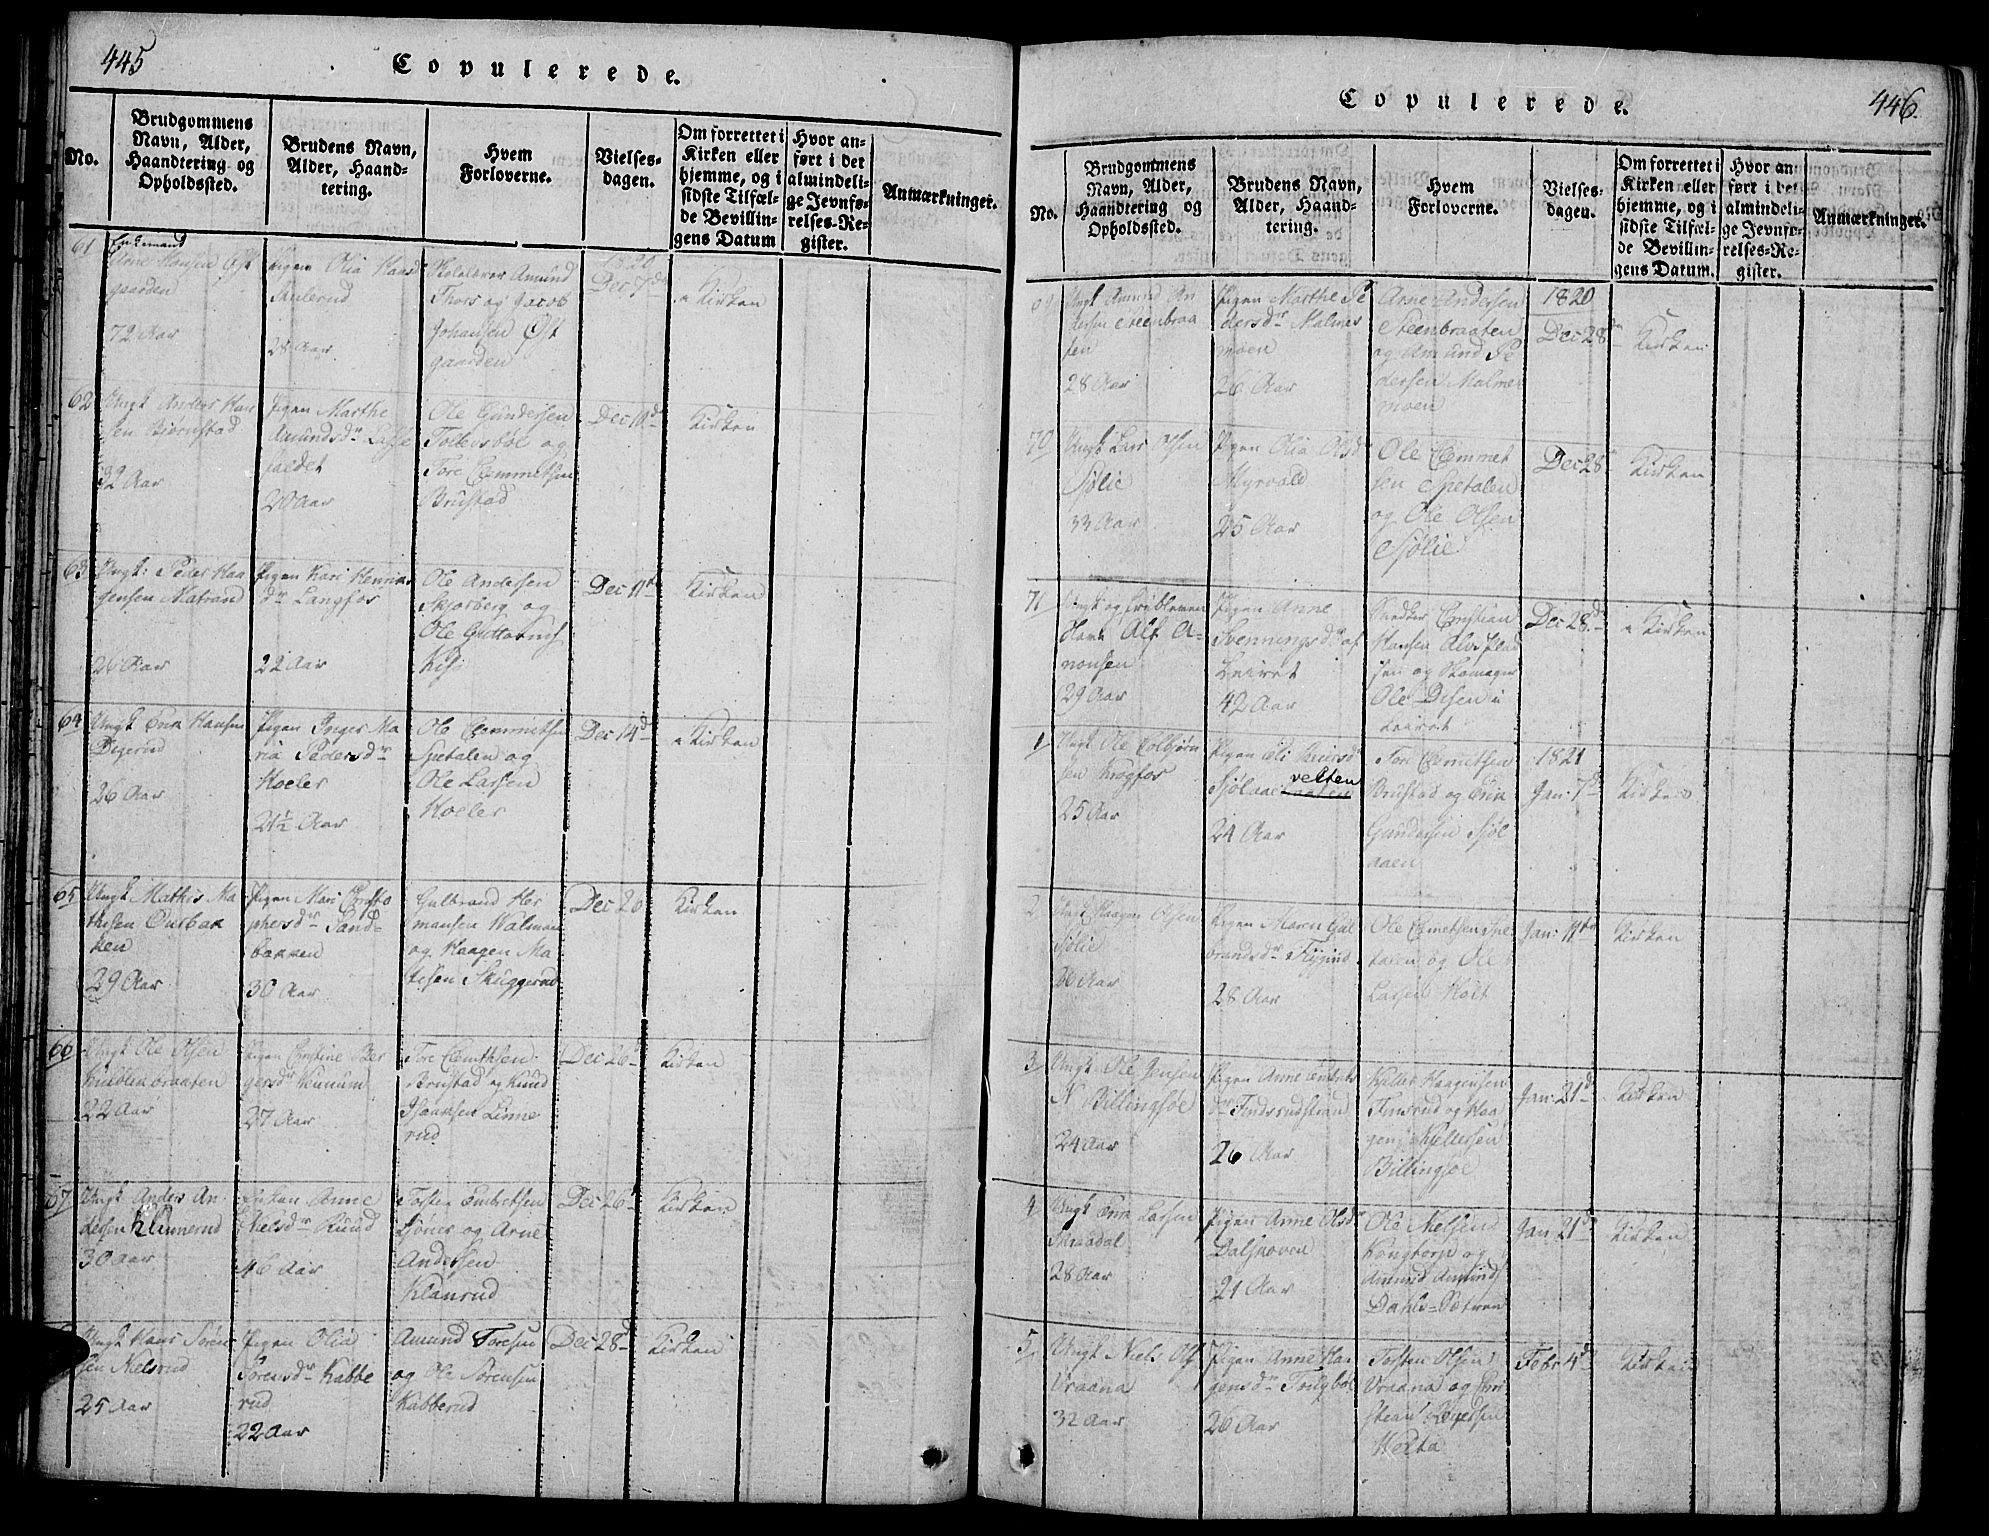 445
Copulerede.
No.
Brudgommens
Navn, Alder,
Haandtering og
Opholdssted.
Brudens Navn,
Alder, Haand-
tering.
Hvem
Forloverne.
Vielses-
dagen.
Om forrettet i
Kirken eller
hjemme, og i
sidste Tilfæl-
de Bevillin-
gens Datum
Hvor an-
ført i det
almindeli-
ge Jevnfø-
relses-Re-
gister.
Anmærkninger.
61
Enkemand
Hansen Øst
gaarden
72 Aar
Pigen Olia
28 Aar
Amund
Thors og Jacob
Johansen Øst
gaarden
1820
Dec 7d
Kirken
62
Ungk Anders Han
sen Biørnstad
32 Aar
Pigen Marthe
Amundsdr
faldet
20 Aar
Ole Gundersen
og
Tore Clemmetsen
Brustad
Dec 10d
Kirken
63
Ungk: Peder Haa
gensen Matrand
26 Aar
Pigen Kari
dr Langfos
22 Aar
Ole Andersen
Skjørberg og
Ole
Dec 11t
Kirken
64
Ungk Erik Hansen
Digerud
26 Aar
Pigen Inger Ma
ria Pedersdr
Hoeler
21½ Aar
Ole Clemmetsen
Spetalen og
Ole Larsen
Hoeler
Dec 14d
Kirken
65
Ungk Mathis Ma
thisen Ourbak
ken
29 Aar
Pigen Mari Christo
phersdr Sand
bakken
30 Aar
Gulbrand Her
mansen
og Haagen Ma
tisen Skuggerud
Dec 26
Kirken
66
Ungk Ole Olsen
22 Aar
Pigen Christine Bir
gersdr
27 Aar
Tore Clemthsen
Brustad og Knud
Isaaksen Linne
rud
Dec 26d
Kirken
67
Ungk Anders An
dersen Klinnerud
30 Aar
Enken Anne
Nielsdr Ruud
46 Aar
Torsten Embretsen
og Arne
Andersen
Klanrud
Dec 26d
Kirken
Ungk Hans Søren
sen Nelsrud
25 Aar
Pigen Olia
Sørensdr Kabbe
rud
22 Aar
Amund Toresen
og Ole Sørensen
Kabberud
Dec 28d
Kirken
446.
Copulerede.
No.
Brudgommens
Navn, Alder,
Haandtering og
Opholdssted.
Brudens Navn,
Alder, Haand-
tering.
Hvem
Forloverne.
Vielses-
dagen.
Om forrettet i
Kirken eller
hjemme, og i
sidste Tilfæl-
de Bevillin-
gens Datum.
Hvor an-
ført i det
almindeli-
ge Jevnfø-
relses-Re-
gister.
Anmærkninger.
69
Ungk Amund An
dersen Steenbraa
ten
28 Aar
Pigen Marthe Pe
dersdr Malmer
moen
26 Aar
Arne Andersen
Steenbraaten
og Amund Pe
dersen Malmer
moen
1820
Dec 28
Kirken
70
Ungk Lars Olsen
Sjølie
33 Aar
Pigen Olia Olsd
Myrvold
25 Aar
Ole Clemmet
sen Spetalen
og Ole Olsen
Sjølie
Dec 28
Kirken
71
Ungk og
Alf A-
nonsen
29 Aar
Pigen Anne
Svenningsdr af
Leiret
42 Aar
Snedker Christian
Hansen
sen og Skomager
Ole Olsen i
Leiret
Dec 28d
Kirken
1
Ungk Ole Colbjørn
sen Krogfos
25 Aar
Pigen Eli
Sjølaae velten
24 Aar
Tore Clemetsen
Brustad og Erik
Gundersen Sjøl
aaen
1821
Jan: 7d
Kirken
2
Ungk Haagen Olsen
Sjølie
30 Aar
Pigen Maren Gul
brandsdr Flygind
28 Aar
Ole Clemetsen Spe
talen og Ole
Larsen Holt
Jan: 11te
Kirken
3
Ungk Ole Jensen
N Billingsøe
24 Aar
Pigen Anne Embrets
dr Findsrudstrand
26 Aar
Kjeller Haagensen
Finsrud og Haa
gen Kjellersen
Billingsøe
Jan: 21d
Kirken
4
Ungk Erik Larsen
Skraadal
28 Aar
Pigen Anne Olsdr
Dalskoven
21 Aar
Ole Nielsen
Kongtorp og
Amund Amunds
Dahls-Sætren
Jan: 21d
Kirken
5
Ungk Niels Ols
Vraana
32 Aar
Pigen Anne Haa
gensdr
26 Aar
Torsten Olsen
Vraana og Chri
stean
Dec
Febr 4d
Kirken